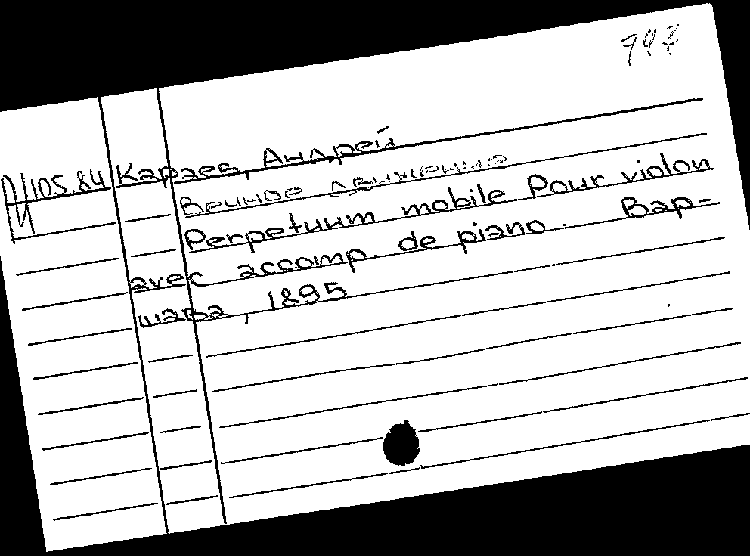 Караев, Андрей
Вечное движение
Perpetuum mobile Pour violon
avec accomp. de piano. Вар-
шава, 1895